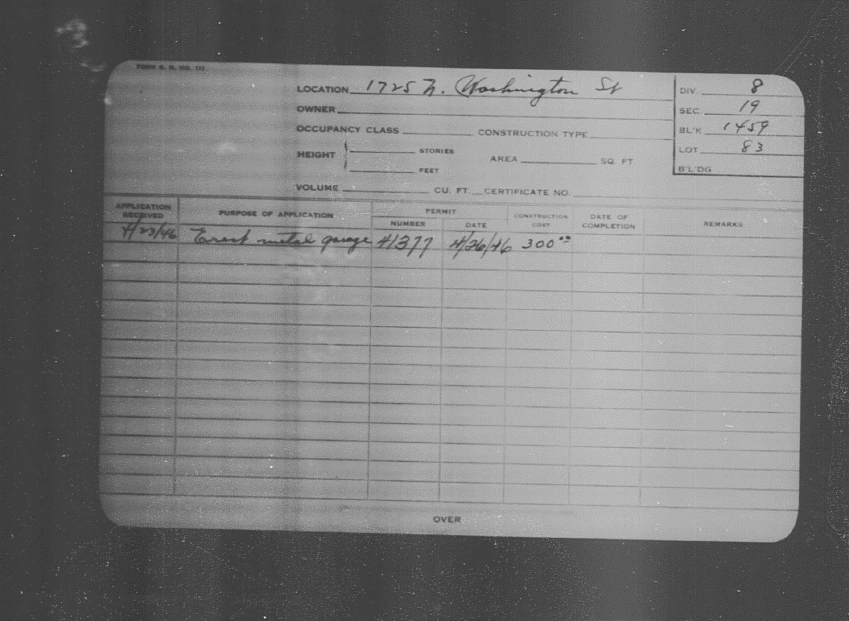 FORM B. N. NO. 111
LOCATION 1725 N. Washington St
DIV. 8
OWNER
SEC. 19
OCCUPANCY CLASS CONSTRUCTION TYPE
BL'K 1459
HEIGHT { STORIES AREA SQ. FT
LOT 83
FEET
B'L'DG
VOLUME CU. FT. CERTIFICATE NO.
APPLICATION RECEIVED PURPOSE OF APPLICATION PERMIT NUMBER DATE CONSTRUCTION COST DATE OF COMPLETION REMARKS
4/23/46 Erect metal garage 41377 4/26/46 300.00
OVER